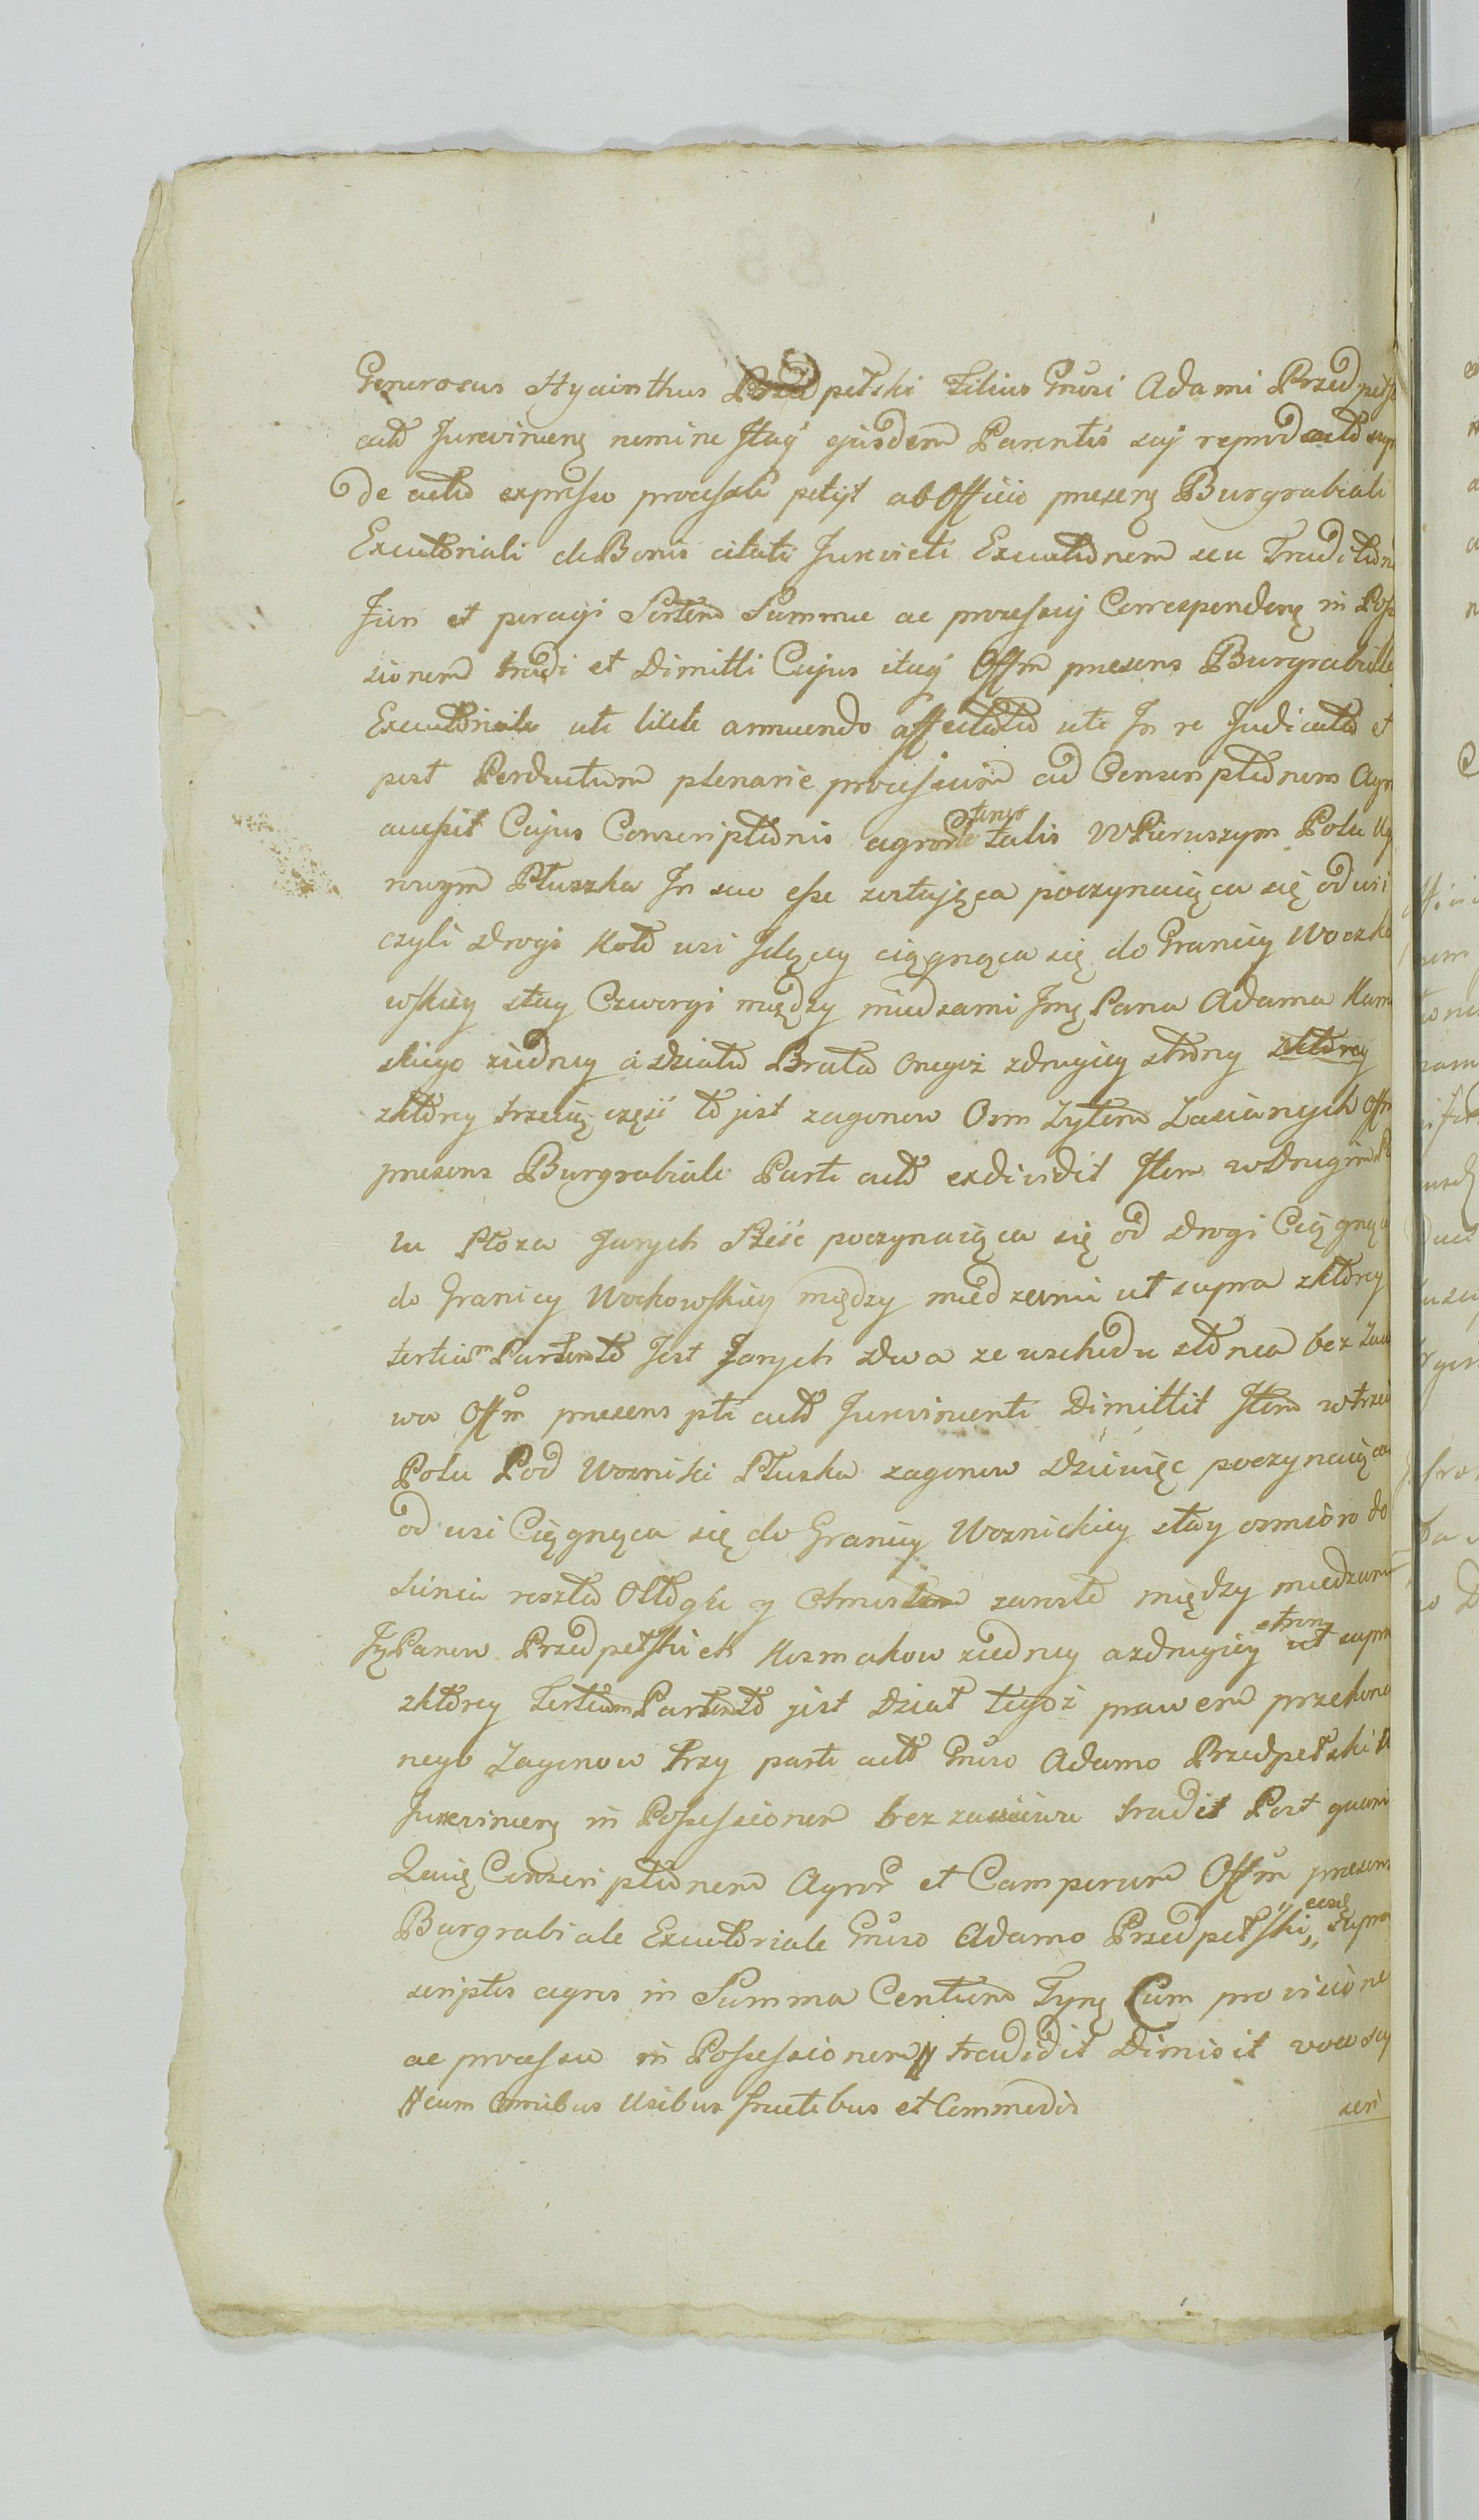 Generosus Hyainthus Przedpełski Filius Gnŭsi Adami Przedpełs
actŏ Jurevincenę nomine Itaq̃ ejusdem Parentis suj reprod actŏ
de actŭ expresso processu petijt ab Officio presenę Burgrabiali
Executŏriali de Bonis citati Jurevicti Executiŏnem seu Traditiŏn
Fieri et peragi Sortem Summæ ac processuj Correspondenę in Poss
sionem tradi et Dimitti Cujus itaq̃ Offm presens Burgrabiale
Executŏriale uti licite annuendo affectatiŏ uti In re Judicata et
post Perductum plenarie processum ad Conscriptiŏnem Agr
accessit Cujus Conscriptiŏnis agror tenor talis W Pierwszym Polu
nowym Płuszka In suo esse zostająca poczynaiąca się od wsi
czyli drogi koło wsi Idącey ciągnąca się do Granicy Woczko
wskiey stay Czworgi między miedzami Jmę Pana Adama Kam
skiego ziedney a działŭ Brata Onegoż zdrugiey strŏny zktŏrey
zktŏrey trzecią część tŏ jest zagonow Osm Żytem Zasianych Offm
presens Burgrabiale Parti actŏ exdividit Item w Drugim P
lu Płoza Jarych Sześć poczynaiąca się od drogi Ciągnąca
do Granicy Wockowskiey między miedzami ut supra zktŏrey
tertiam Partem tŏ Jest Jarych dwa ze wschodu słŏnca bez Zasi
wu Offm̃ presens pti actŏ Jurevincenti Dimittit Item w trzeci
Polu Pod Wozniki Płuska zagonow Dziewięc poczynaiąca
od wsi Ciągnąca się do Granicy Woznickiey stay osmioro do
siania reszta Odłŏgi y Chrustem zarosłŏ między miedzami
Ję Panow Przedpełskich Kozmakow ziedney a zdrugiey strony ut supra
zktŏrey Tertiam Partem tŏ jest Dział tegoż prawem przekona
nego Zagonow trzy parti actŏ Gnŭso Adamo Przedpełski
Jurevincenę in Possessionem bez zasiewu tradit Post quam
Qaię Conscriptiŏnem Agror̃ et Camporum Offm̃ presens
Burgrabiale Executŏriale Gnŭso Adamo Przedpełski „ supra
scriptos agros in Summa Centum Tynę Cum provisione
ac processu in Possessionem // tradidit Dimisit
// cum Omnibus Usibus fructibus et Commodis
seri